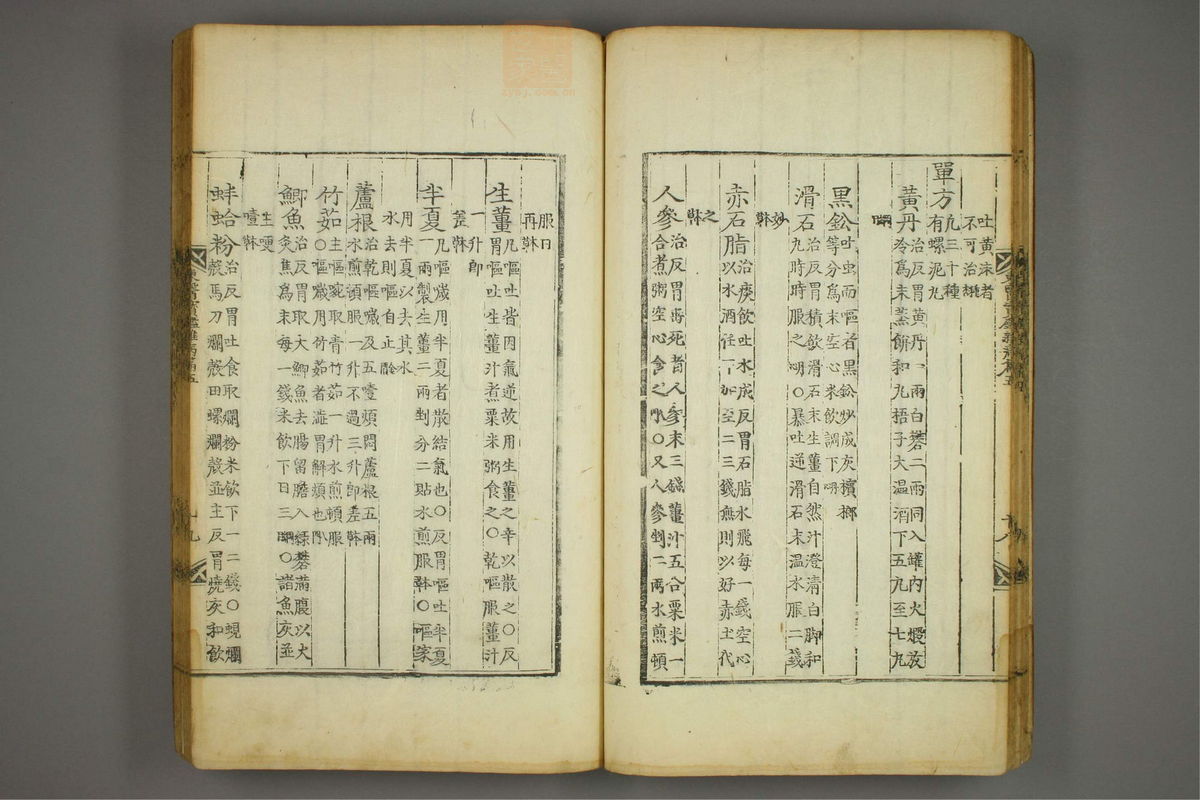 吐黃沫者
不可治
單方
凡三十種
有螺泥丸
黃丹
治反胃黃丹一兩白礬二兩同入罐內火煆放
冷爲末蒸餠和丸梧子大溫酒下五丸至七丸
黑鉛
吐虫而嘔者黑鉛炒成灰檳榔
等分爲末空心米飮調下
滑石
治反胃積飮滑石末生薑自然汁澄淸白脚和
丸時時服之○暴吐逆滑石末溫水服二錢
赤石脂
治痰飮吐水成反胃石脂水飛每一錢空心
以水酒任下加至二三錢無則以好赤土代
之
人參
治反胃將死者人參末三錢薑汁五合粟米一
合煮粥空心食之○又人參剉二兩水煎頓
服日
再
生薑
凡嘔吐皆因氣逆故用生薑之辛以散之○反
胃嘔吐生薑汁煮粟米粥食之○乾嘔服薑汁
一升卽
差
半夏
凡嘔噦用半夏者散結氣也○反胃嘔吐半夏
一兩製生薑二兩剉分二貼水煎服○嘔家
用半夏以去其水
水去則嘔自止
蘆根
治乾嘔噦及五噎煩悶蘆根五兩
水煎頓服一升不過三升卽差
竹茹
主嘔啘取靑竹茹一升水煎頓服
○嘔噦用竹茹者滋胃解煩也
鯽魚
治反胃取大鯽魚去腸留膽入綠礬滿腹以火
灸焦爲末每一錢米飮下日三○諸魚灰並
主哽
噎
蚌蛤粉
治反胃吐食取爛粉米飮下一二錢○蜆爛
殼馬刀爛殼田螺爛殼並主反胃燒灰和飮